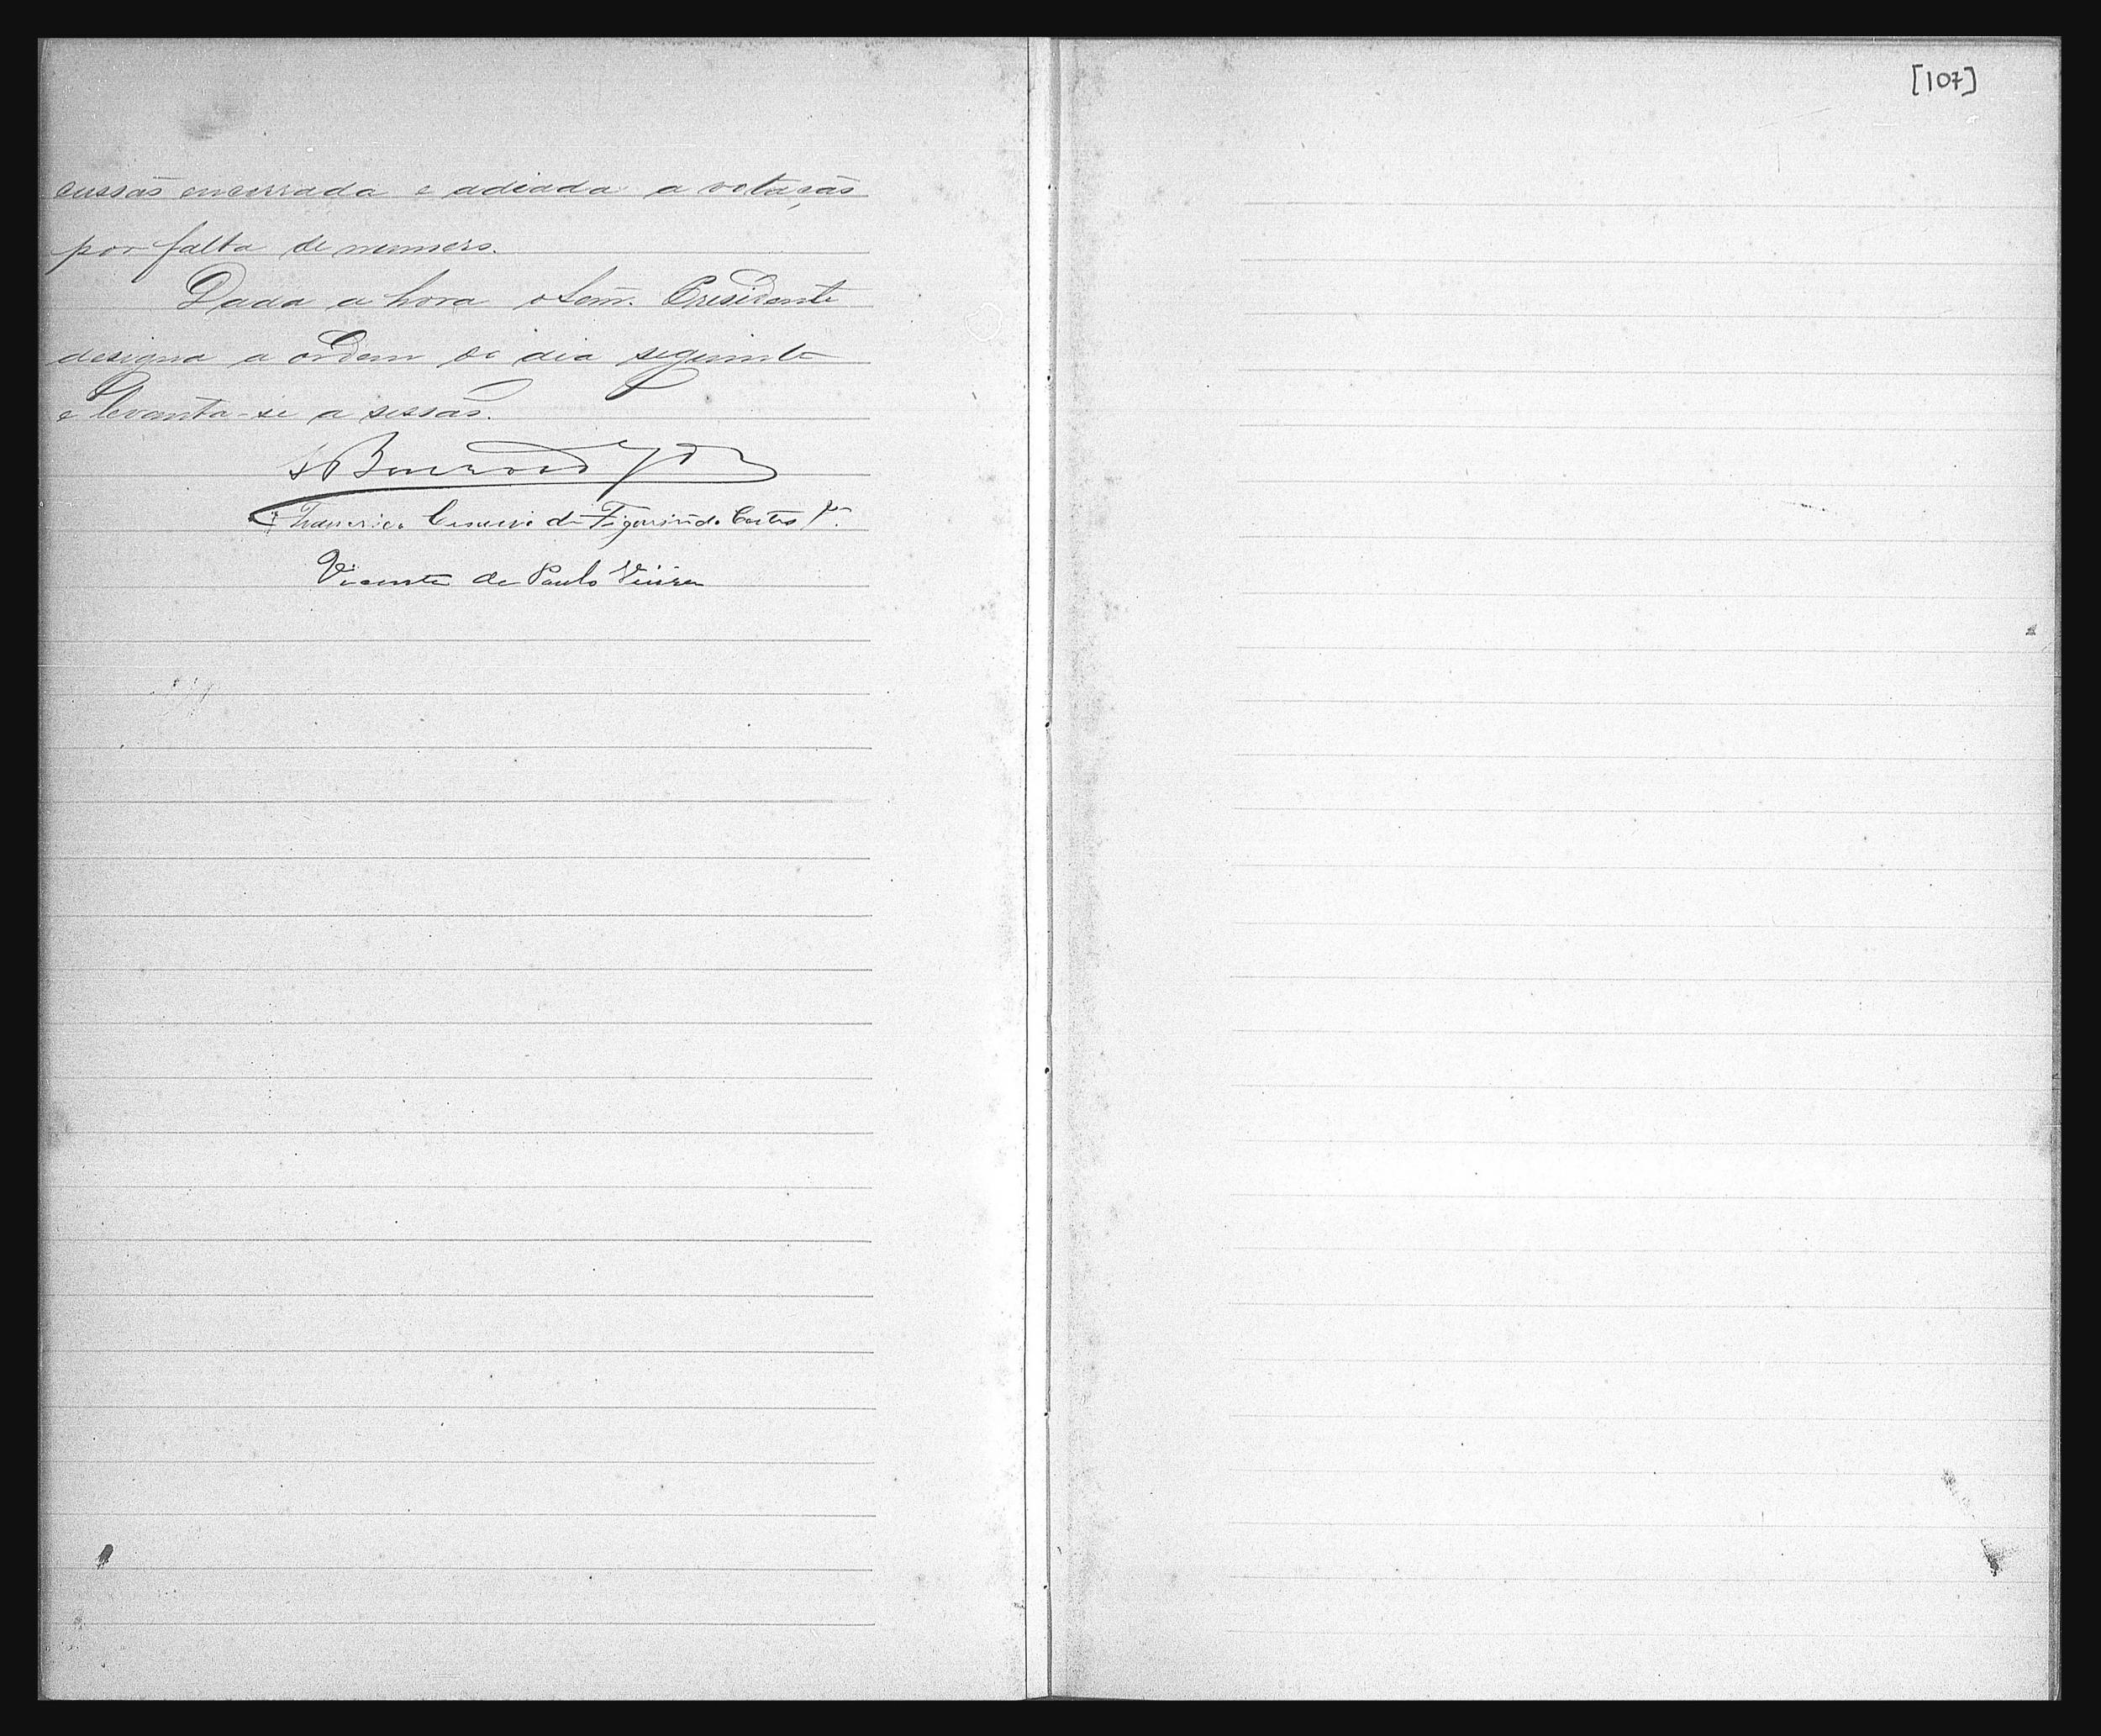 cussão encerrada e adiada a votação
por falta de numero.
Dada a hora o Senr. Presidente
designa a ordem do dia seguinte
e levanta-se a sessão.
de Figueiredo Castro Jor.
Vicente de Paulo Vieira
[107]